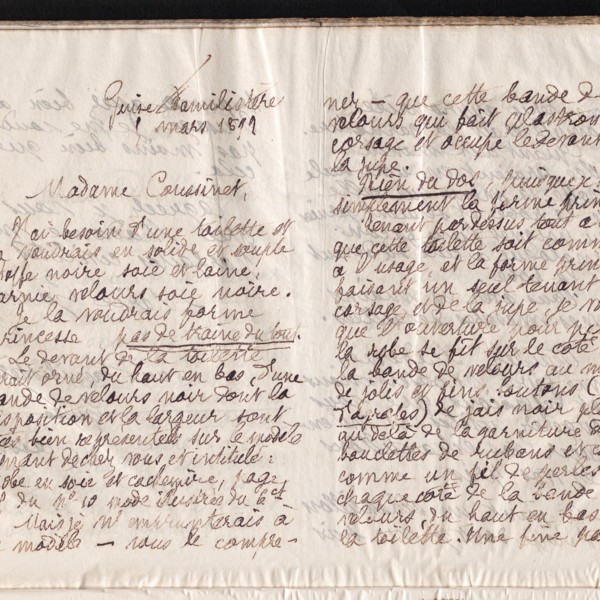 Guise Familistère
1 mars 1891
Madame Coussinet,
J'ai besoin d'une toilette et
voudrais en solide et souple
étoffe noire soie et laine,
garnie velours soie noire.
Je la voudrais forme
princesse pas de traîne du tout.
Le devant de la toilette
serait orné, du haut en bas, d'une
bande de velours noir dont la
disposition et la largeur sont
très bien représentées sur le modèle
venant de chez vous et intitulé:
robe en soie et cachemire, page
du n° 10 mode illustrée du 6 oct
Mais je n'emprunterais à
ce modèle — vous le compre-
ner — que cette bande de
velours qui fait plastron
corsage et occupe le devant
la jupe.
Rien du dos puisque
simplement la forme prin
Tenant par dessus tout à
que cette toilette soit comm
à l'usage, et la forme prin
faisant un seul tenant
corsage et de la jupe, je v
que l'ouverture pour p
la robe se fît sur le côté
la bande de velours au m
de jolis et fins boutons (
) de jais noir pl
au delà de la garniture d
bouclettes de rubans et
comme un fil de perles
chaque côté de la bande
velours, du haut en bas
la toilette. Une fine pa